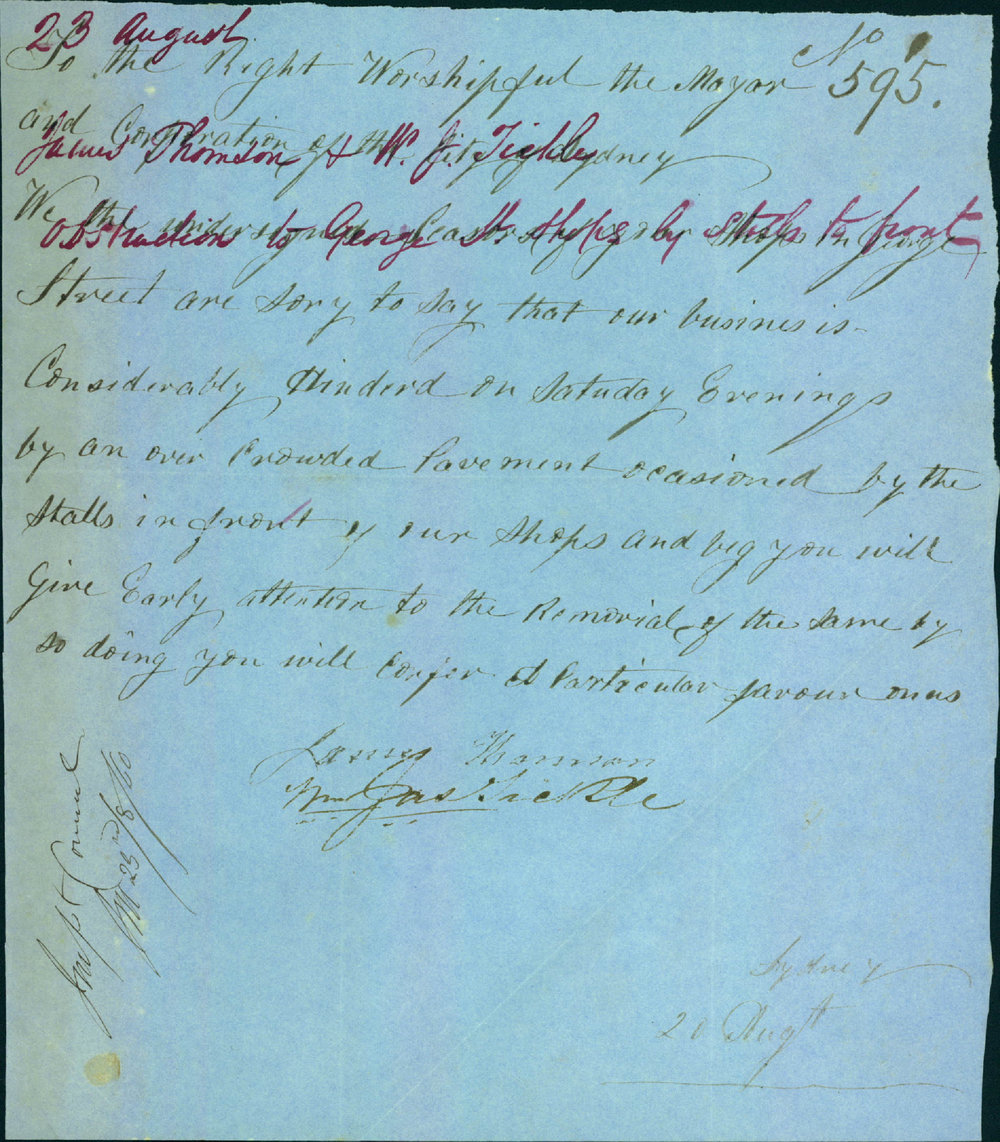 23 August
To the Right Worshipful the Mayor
No 595.
and Corporation of the City of Sydney
James Thomson & W. J. Tickle
We the undersigned of Shops in George
Obstruction to George St. shops by stalls to front
Street are sory to say that our busines is
Considerably Hinderd on Satuday Evenings
by an over Crowded Pavement ocasioned by the
Stalls in front of our Shops and beg you will
Give Early attention to the Removial of the same by
so doing you will Confer A Particular favour on us
James Thomson
Wm Jas Tickle
Insp
23rd/8/60
Sydney
20 Augt